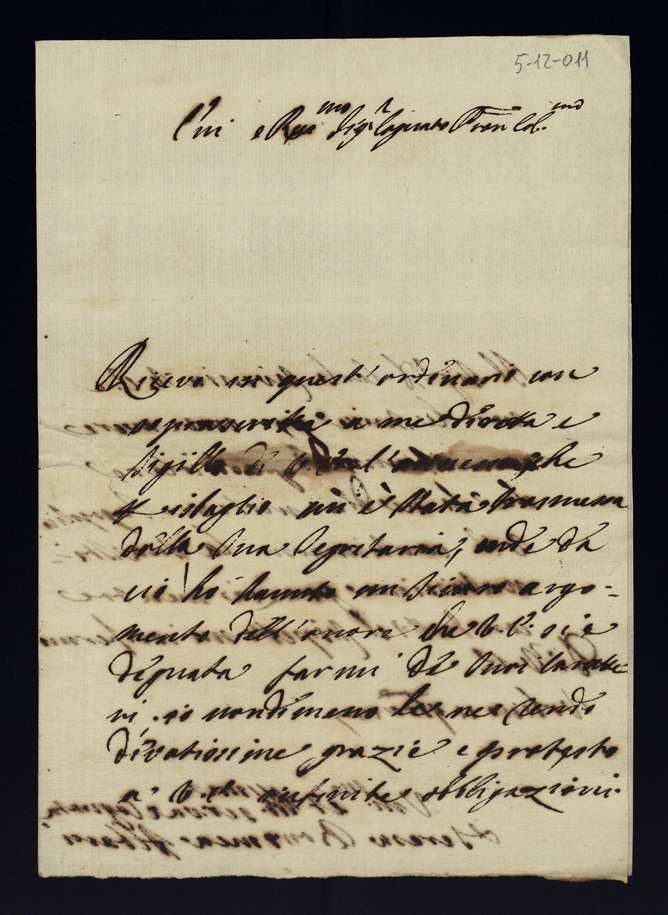 5-12-011
e Rmo Sigr Cognato Pron Col.mo
Ricevo in quest'ordinario con
soprascritta a me diretta e
sigillo di V. l' che
isbaglio mi è stata trasmessa
dalla sua Segretaria, onde da
ciò ho hauuto un sicuro argo-
mento dell'onore che V. E. si è
degnata farmi de suoi caratte
ri. io nondimeno le ne rendo
divotissime grazie e protesto
a' V. E. infinite obbligazioni.